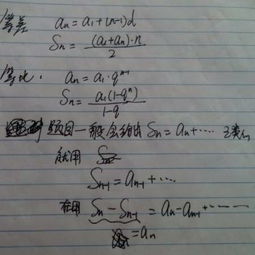 等差 aₙ = a₁ + (n-1)d
Sₙ = (a₁+aₙ)·n / 2
等比: aₙ = a₁·qⁿ⁻¹
Sₙ = a₁(1-qⁿ) / 1-q
题目一般会给出 Sₙ = aₙ + ···· 之类的
就用
Sₙ₋₁ = aₙ₋₁ + ···
在用 Sₙ - Sₙ₋₁ = aₙ - aₙ₋₁ + ······
= aₙ